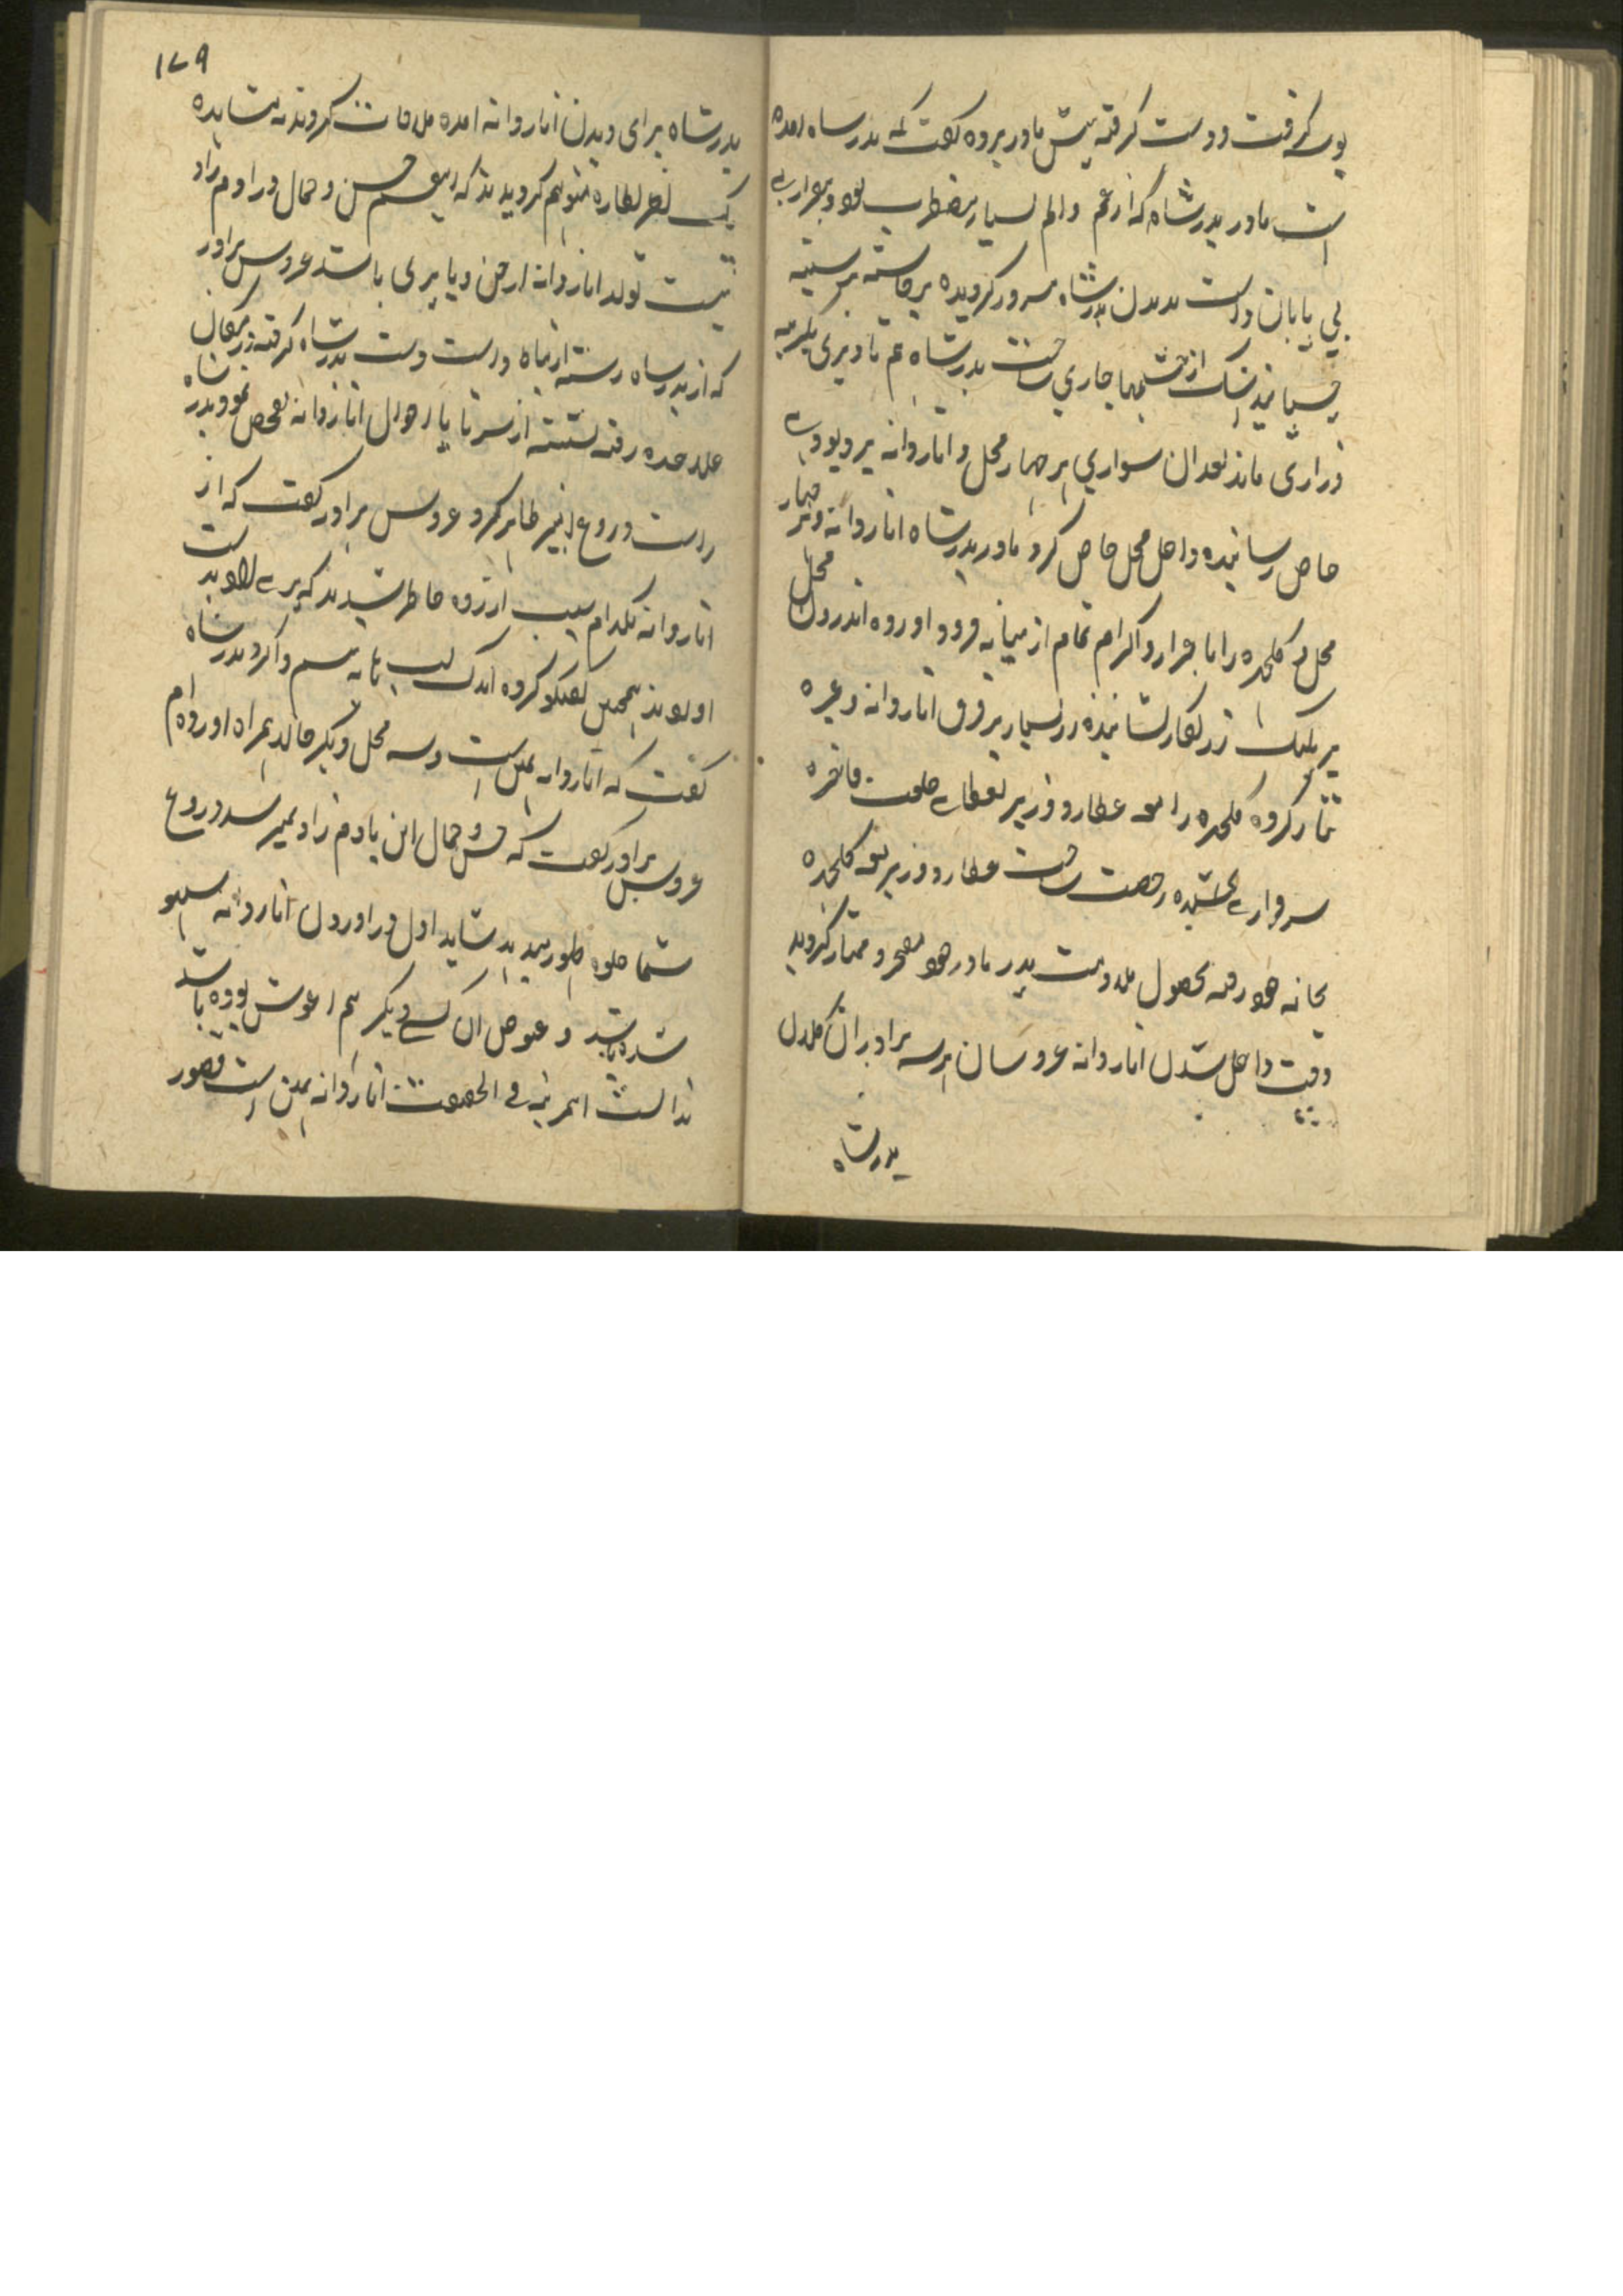 بوسه گرفت و دست گرفته پیش مادر برده گفت که بدرشاه آمده
است مادر بدرشاه که از غم و الم بسیار مضطرب بود و بیقراری
بی پایان داشت بدیدن بدرشاه مسرور گردیده برخاسته بر سینه
چسپانید اشک از چشمها جاری ساخت بدرشاه هم تا دیری بگریه
و زاری ماند بعد ازان سواری هر چهار محل و اناروانه بر دیودی
خاص رسانیده داخل محل خاص کرد مادر بدرشاه اناروانه و هر چهار
محل و گلچهره را با اعزاز و اکرام تمام از میانه فرود آورده اندرون محل
بر پلنگ زرنگار نشانیده زر بسیار بر فرق اناروانه وغیره
نثار کرده گلچهره را مع عطارد وزیر بعطای خلعت فاخره
سرفرازی بخشیده رخصت ساخت عطارد وزیر مع گلچهره
بخانه خود رفته بحصول ملازمت پدر مادر خود مفتخر و ممتاز گردید
وقت داخل شدن اناروانه عروسان هر سه برادران کلان
بدرشاه
۱۷۹
بدرشاه برای دیدن اناروانه آمده ملاقات کردند بمشاهده
یک نظر نظاره متوهم گردیدند که این قسم حسن و جمال در آدم زاد
نیست تولد اناروانه از جن و یا پری باشد عروس برادر
که از بدرشاه رشته ازیاد داشت دست بدرشاه گرفته در مکان
علاحده رفته نشسته از سر تا پا احوال اناروانه تفحص نمود بدرشاه
راست دروغ آمیز ظاهر کرد عروس برادر گفت که از
اناروانه بکدام سبب آزرده خاطر شدید که پری لاله بدست
آوردید همچنین گفتگو کرده اندک لب به تبسم وا کرد بدرشاه
گفت که اناروانه همین است و سه محل دیگر خاله همراه آورده ام
عروس برادر گفت که حسن و جمال این با آدم زاد نمیرسد دروغ
شما جلوه ظهور میدهد شاید اول در آوردن اناروانه سهو
شده باشد و عوض آن کسی دیگر هم آغوش بوده باشد
ندانست اهرمنه فی الحقیقت اناروانه همین است قصور